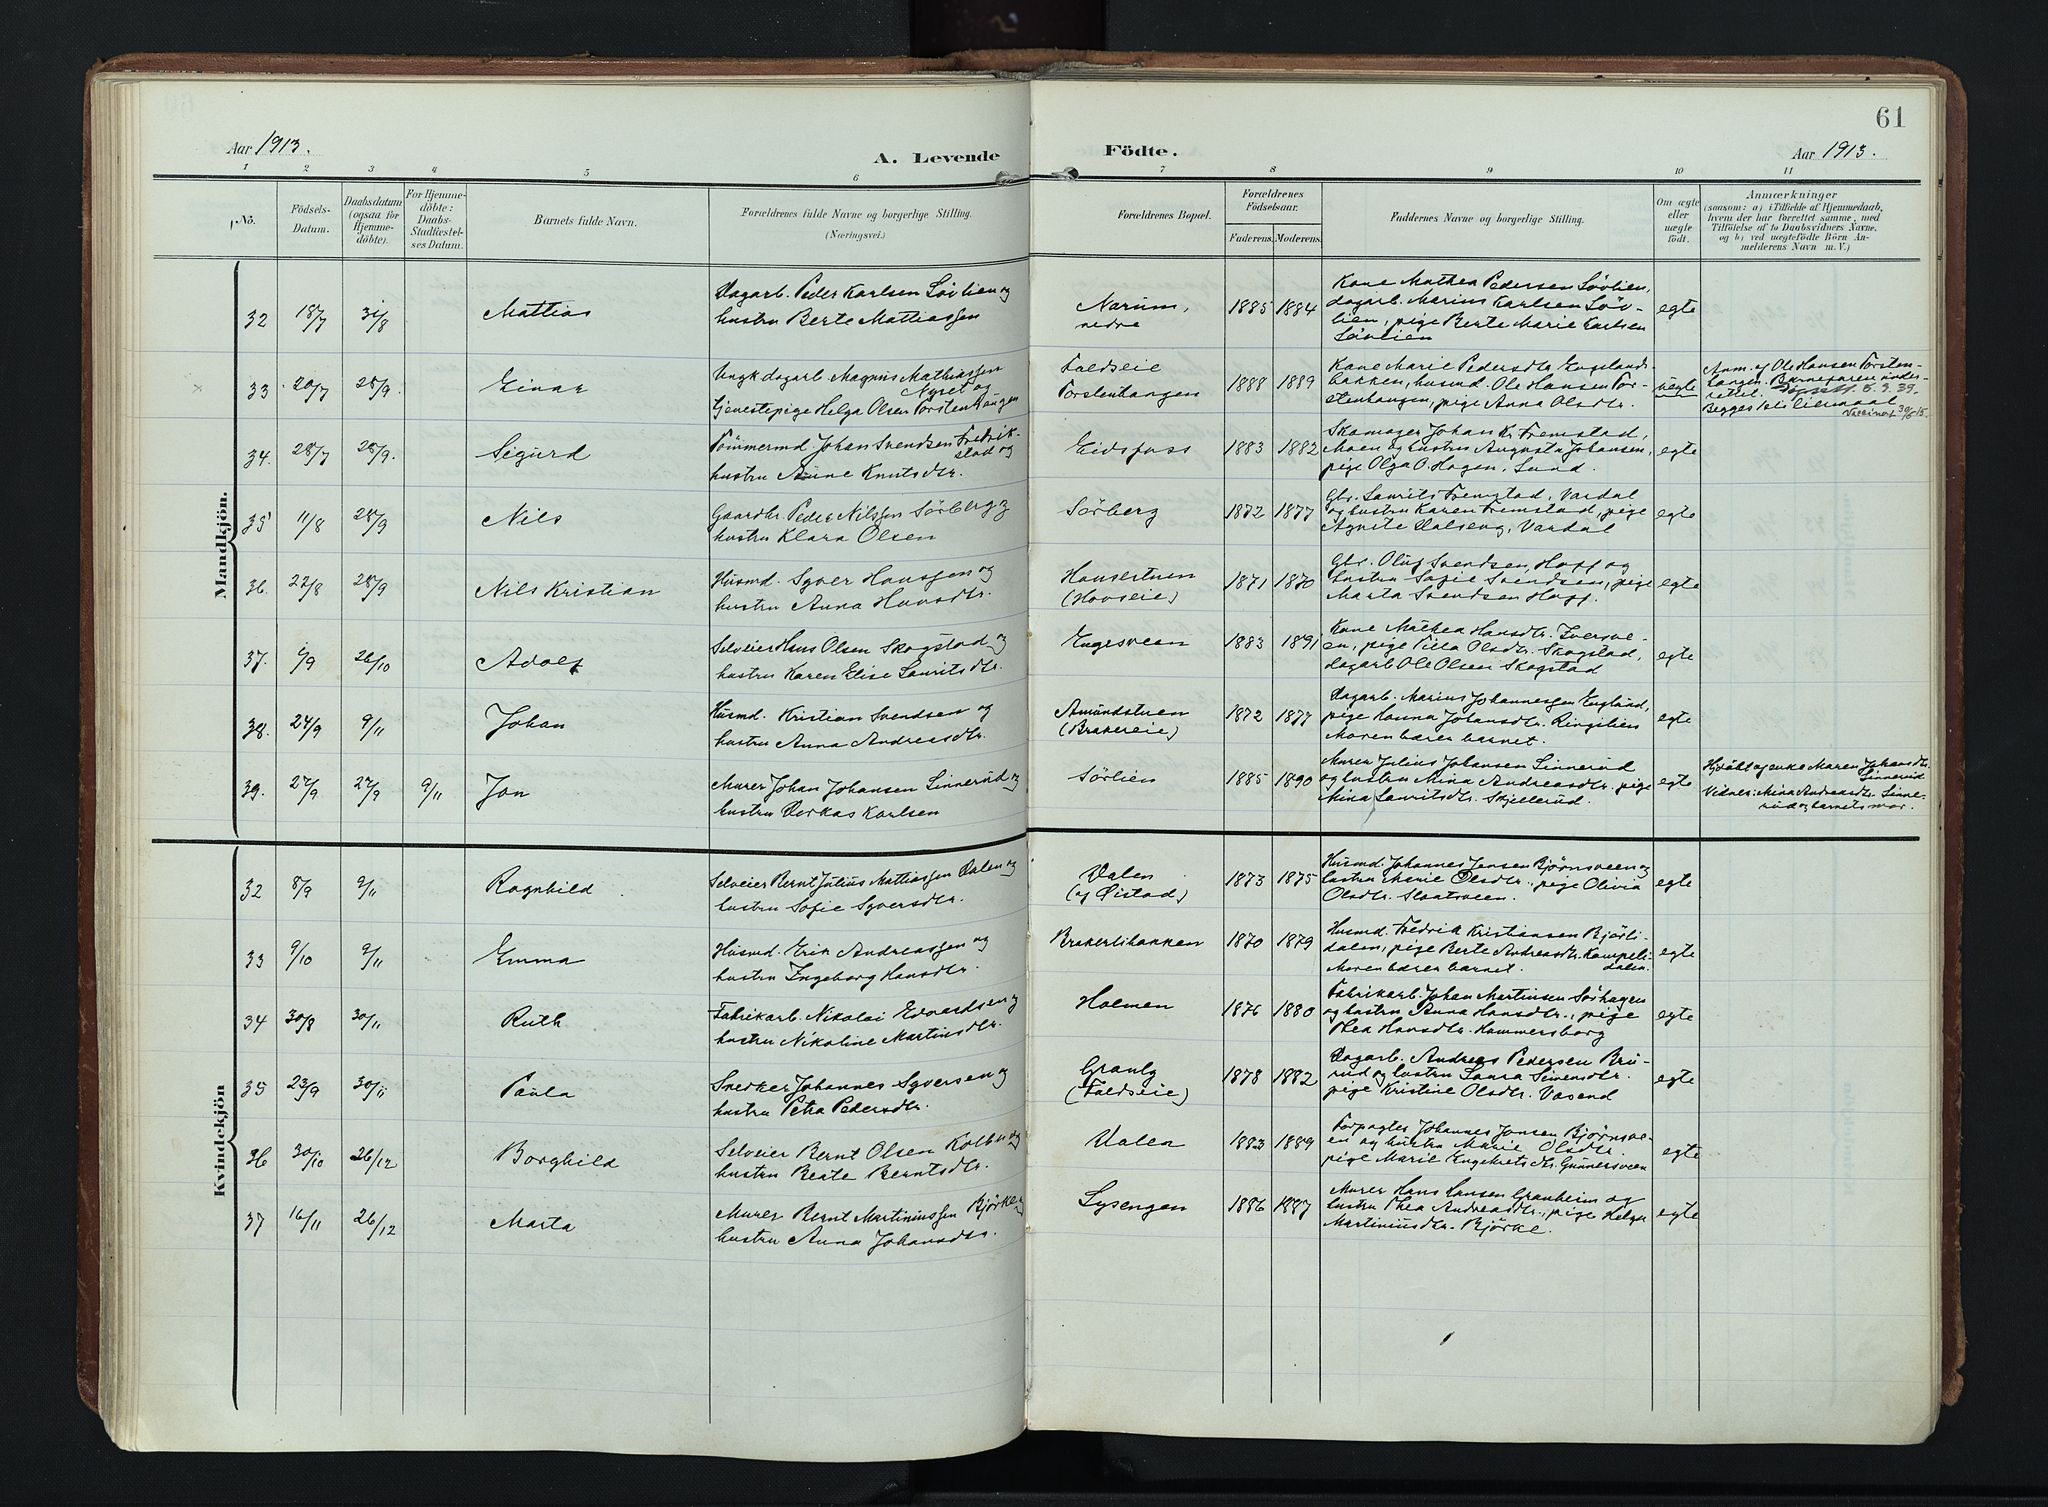 61
Aar 1913.
A. Levende
Födte.
Aar 1913.
1 2 3 4 5 6 7 8 9 10 11
No.
Födsels-
Datum.
Daabsdatum
(ogsaa for
Hjemme-
döbte).
For Hjemme-
döbte:
Daabs-
Stadfæstel-
ses Datum.
Barnets fulde Navn.
Forældrenes fulde Navne og borgerlige Stilling.
(Næringsvei.)
Forældrenes Bopæl.
Forældrenes
Födselsaar.
Faderens. Moderens.
Faddernes Navne og borgerlige Stilling.
Om ægte
eller
uægte
födt.
Anmærkninger
(saasom: a) i Tilfælde af Hjemmedaab,
hvem der har forrettet samme, med
Tilföielse af to Daabsvidners Navne,
og b) ved uægtefödte Börn An-
melderens Navn m. V.)
Mandkjön.
32 18/7 31/8 Mattias
Dagarb. Peder Karlsen Søvlien og
hustru Berte Mattiassen
Narum,
nedre
1885 1884
Kone Mathea Pedersen Søvlien,
dagarb. Marius Karlsen Søv-
lien, pige Berte Marie Karlsen
Søvlien
egte
33 20/7 28/9 Einar
Ungk dagarb Magnus Mathiassen
Nyset og
tjenestepige Helga Olsen Torstenhaugen
Faldseie
Torstenhaugen
1888 1889
Kone Marie Pedersdtr. Engelands-
bakken, husmd. Ole Hansen Tor-
stenhaugen, pige Anna Olsdtr.
uegte
Anm. af Ole Hansen Torsten-
haugen. Barnefaren under-
rettet.
Begges 1ste leiermaal
34. 28/7 28/9. Sigurd
Tömmermd. Johan Svendsen Fredrik-
stad og
hustru Anne Knutsdtr.
Eidsfoss
1883 1882
Skomager Johan Kr. Fremstad,
Moen og hustru Augusta Johansen,
pige Olga O. Hagen, Lund.
egte
35 11/8 28/9 Nils
Gaardbr Peder Nilssen Sørberg og
hustru Klara Olsen
Sørberg
1872 1877
Gbr. Laurits Fremstad, Vardal
og hustru Karen Fremstad, pige
Agnete Dalseng, Vardal
egte
36. 22/8 28/9 Nils Kristian
Husmd. Syver Hanssen og
hustru Anna Hansdtr.
Hansestuen
(Hovseie)
1871 1870
Gbr. Oluf Svendsen, Hoff og
hustru Sofie Svendsen, pige
Marta Svendsen Hoff.
egte
37. 6/9 26/10 Adolf
Selveier Hans Olsen Skogstad og
hustru Karen Elise Lauritsdtr.
Engesveen
1883 1891
Kone Mathea Hansdtr. Iversve-
en, pige Tilla Olsdtr. Skogstad,
dagarb Ole Olsen Skogstad
egte
38. 24/9 9/11 Johan
Husmd. Kristian Svendsen og
hustru Anna Andreasdtr.
Amundstuen
(Brakereie)
1872 1877
Dagarb. Marius Johannessen Englund,
pige Hanna Johansdtr. Ringelien
Moren bærer barnet.
egte
39. 27/9 27/9 9/11 Jon
Murer Johan Johansen Linnerud og
hustru Dorkas Karlsen
Sørlien
1885 1890
Murer Julius Johansen Linnerud
og hustru Mina Andreasdtr. pige
Mina Lauritsdtr. Skjellerud.
egte
Hjdøbt af enke Maren Johansdtr.
Linnerud
Vidner: Mina Andreasdtr. Linne-
rud og barnets mor.
Kvindekjön
32 8/9 9/11 Ragnhild
Selveier Bernt Julius Mathiassen Dalen og
hustru Sofie Syversdtr.
Dalen
(af Øistad)
1873 1875
Husmd. Johannes Jensen Bjørnsveen og
hustru Marie Olsdtr., pige Olivia
Olsdtr. Slaatsveen.
egte
33 9/10 9/11 Emma
Husmd. Erik Andreassen og
hustru Ingeborg Hansdtr.
Brakerlibakken
1870 1879
Husmd. Fredrik Kristiansen Bjørli-
dalen, pige Berte Andreasdtr. Kampeli-
dalen.
Moren bærer barnet.
egte
34 30/8 30/11 Ruth
Fabrikarb. Nikolai Edvardsen og
hustru Nikoline Martinsdtr.
Holmen
1876 1880
Fabrikarb. Johan Martinsen Sørhagen
og hustru Anna Hansdtr., pige
Thea Hansdtr. Hammersborg
egte
35 23/9 30/11 Paula
Snedker Johannes Syversen og
hustru Petra Pedersdtr.
Granly
(Faldseie)
1878 1882
Dagarb. Andreas Pedersen Bru-
rud og hustru Laura Simensdtr.
pige Kristine Olsdtr. Vasend
egte
36 30/10 26/12 Borghild
Selveier Bernt Olsen Kolbu og
hustru Beate Berntsdtr.
Dalen
1883 1889
Forpagter Johannes Jensen Bjørnsve-
en og hustru Marie Olsdtr.
pige Marie Engebretsdtr. Gunnersveen
egte
37 16/11 26/12 Marta
Murer Bernt Martiniussen Bjørke og
hustru Anna Johansdtr.
Lysengen
1886 1887
Murer Hans Hansen Granheim og
hustru Thea Andreasdtr., pige Helga
Martiniusdtr. Bjørke.
egte